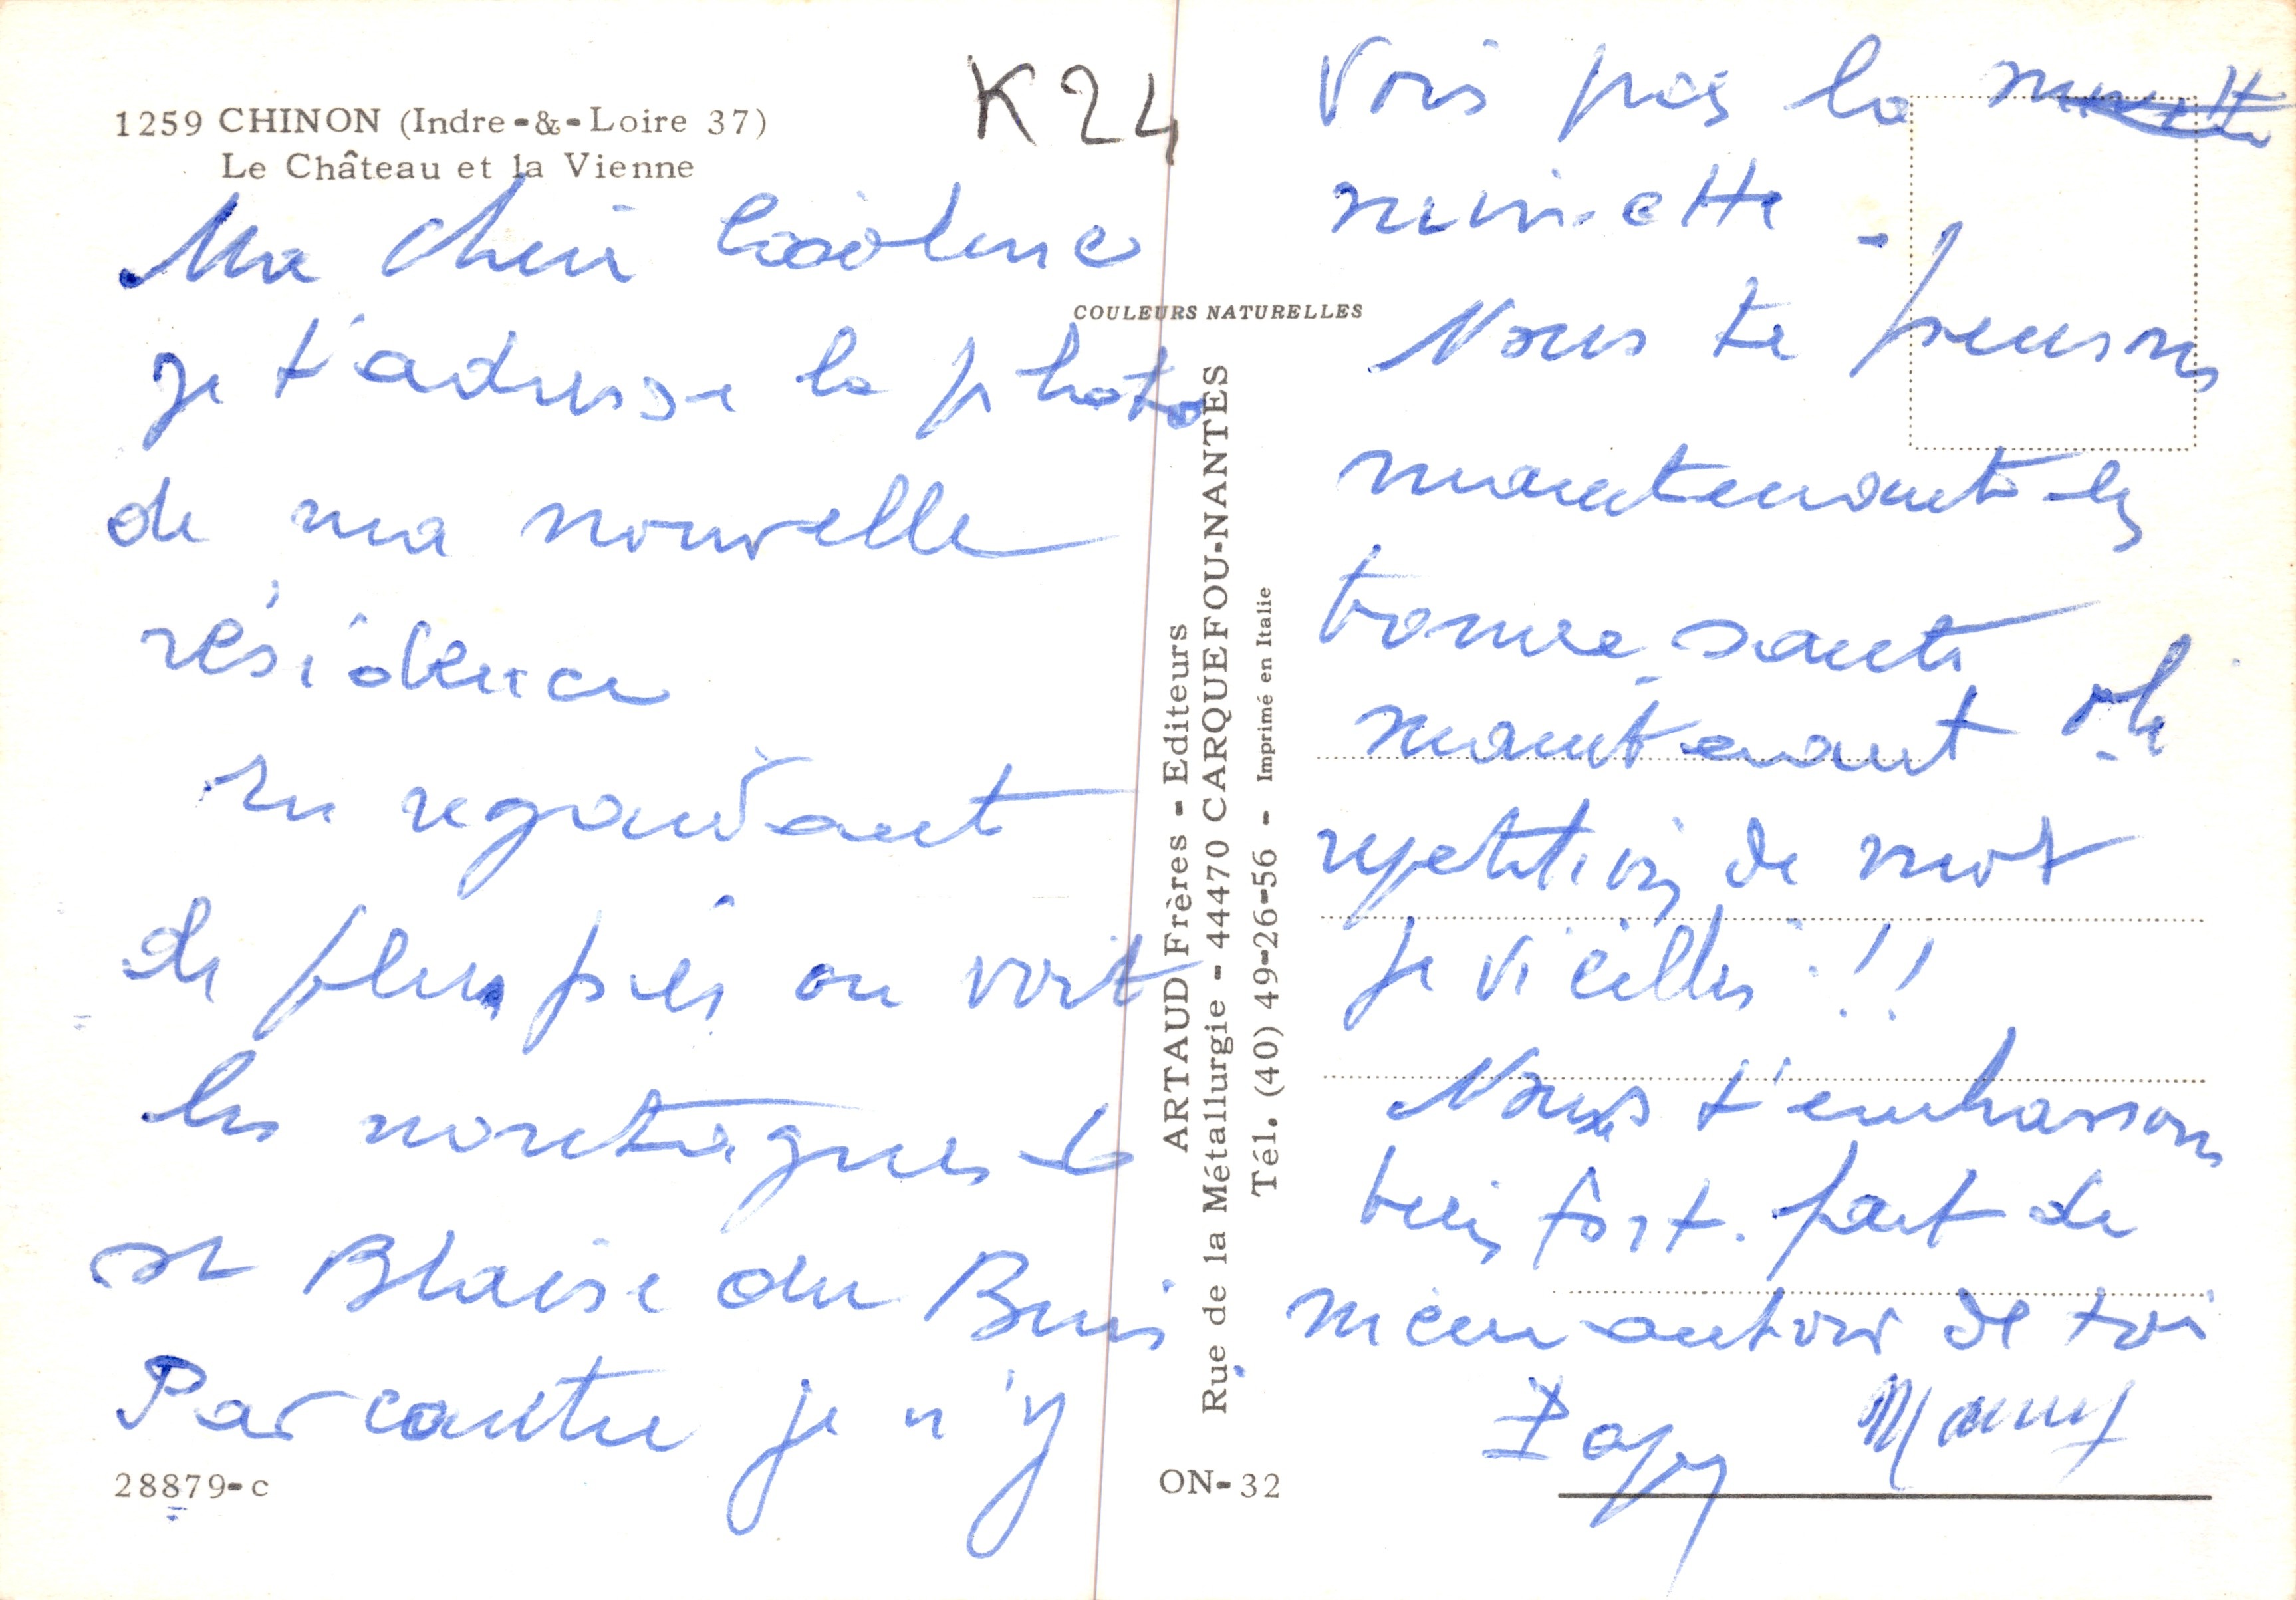 1259 CHINON (Indre-&-Loire 37)
Le Château et la Vienne
K24
Ma chère
je t'adresse la photo
de ma nouvelle
résidence
En regardant
de plus près on voit
les montagnes de
St Blaise du Buis
Par contre je n'y
28879-c
COULEURS NATURELLES
ARTAUD Frères - Editeurs
Rue de la Métallurgie - 44470 CARQUEFOU-NANTES
Tél. (40) 49-26-56 - Imprimé en Italie
ON-32
Vois pas la
minette -
Nous te pensons
maintenant en
bonne santé
maintenant oh
repetition de mot
je vieillis !!
Nous t'embrassons
bien fort. part de
autour de toi
Papy Mamy